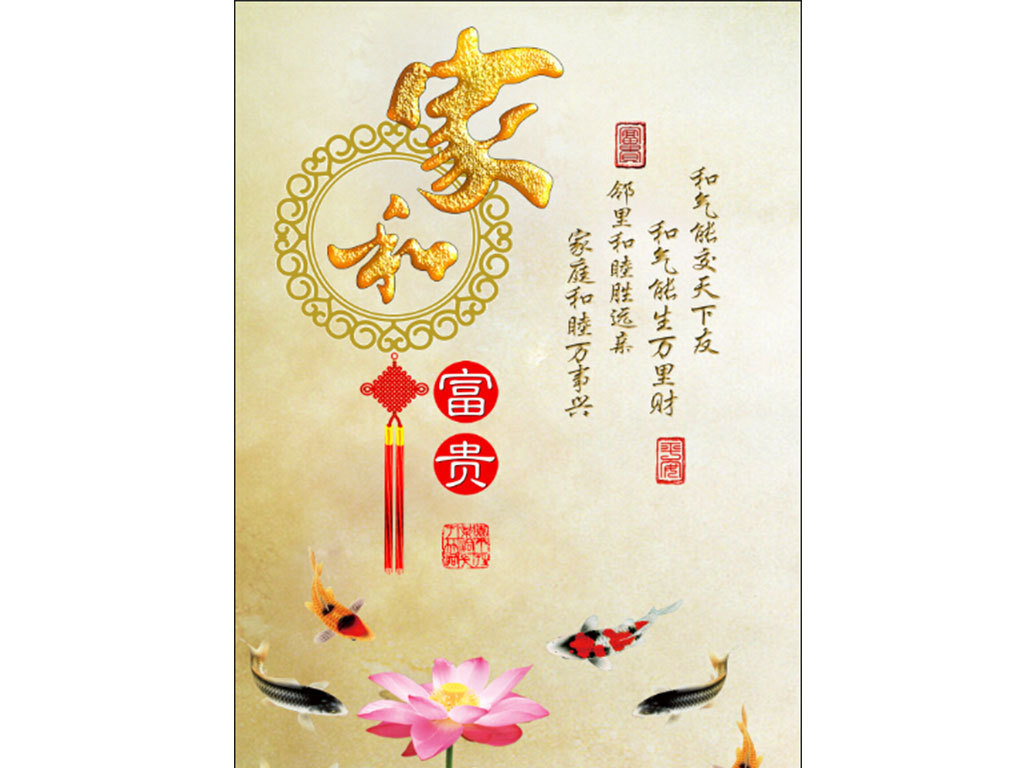 家和
富贵
和气能交天下友
和气能生万里财
邻里和睦胜远亲
家庭和睦万事兴
富贵
平安